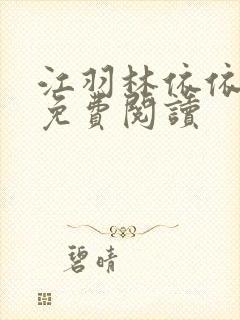 江羽林依依
免費閱讀
碧晴